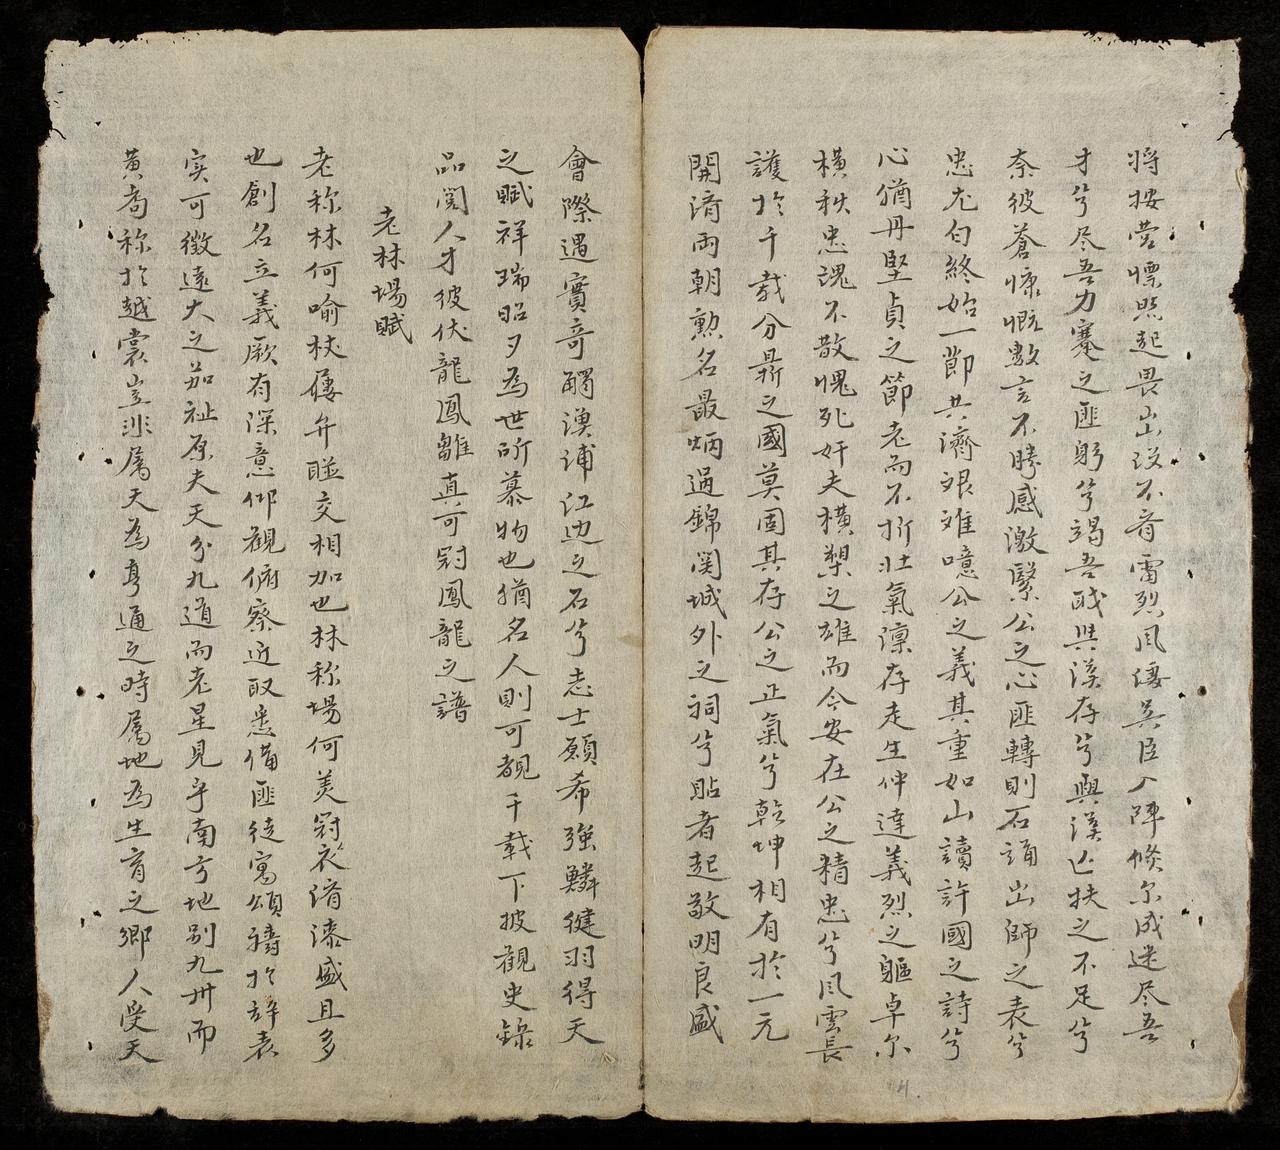 将按営慓毘起畏出没不啻雷烈風僂吳臣入陣倐尔成迷尽吾
才兮尽吾力蹇之匪躬兮竭吾哉與漢存兮與漢亡扶之不足兮
奈彼蒼慷慨數言不勝感激緊公之心匪轉則石誦出師之表兮
忠尤白終始一節共濟艱难噫公之義其重如山讀許國之詩兮
心猶丹堅貞之節老而不折壯氣凛存走生仲達義烈之軀卓尔
橫秋忠魂不散愧死奸夫橫槊之雄而今安在公之精忠兮風雲長
護於千载分鼎之國莫固其存公之正氣兮乾坤相有於一元
開済両朝勲名最炳過錦関城外之祠兮貼者起敬明良盛
會際遇實竒觸澳浦江边之石兮志士願希強鱗健羽得天
之賦祥瑞昭夕為世所慕物也猶名人則可覩千載下披觀史錄
品閱人才彼伏龍鳳雛真可冠鳳龍之譜
老林塲賦
老称林何喻杖屨弁𥊣交相加也林称塲何美冠衣済漆盛且多
也創名立義厥有深意仰觀俯察近取悉備匪徒寓頌禱於辞表
实可徵遠大之茄祉原夫天分九道而老星見乎南方地别九州而
黄耈称於越裳豈非属天為亨通之時属地為生育之鄉人受天